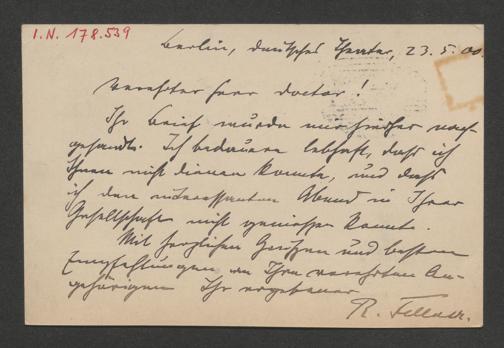 I.N. 178.539
Berlin, deutsches Theater, 23.5.00.
Verehrter Herr Doctor!
Ihr Brief wurde mir hieher nach-
gesandt. Ich bedauere lebhaft, dass ich
Ihnen nicht dienen konnte, und dass
ich den interessanten Abend in Ihrer
Gesellschaft nicht geniessen konnte.
Mit herzlichen Grüßen und besten
Empfehlungen an Ihre verehrten An-
gehörigen Ihr ergebener
R.